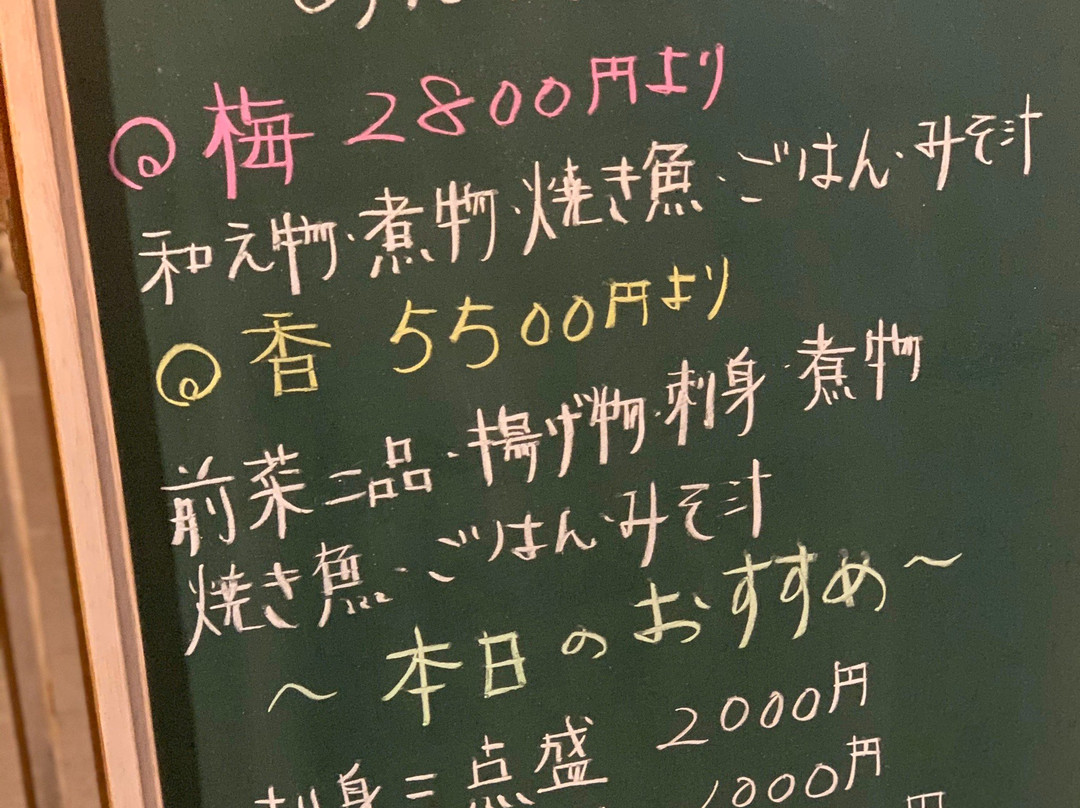 @梅 2800円より
和え物・煮物・焼き魚・ごはん・みそ汁
@香 5500円より
前菜二品・揚げ物・刺身・煮物
焼き魚・ごはん・みそ汁
~本日のおすすめ~
刺身二点盛 2000円
1000円
円